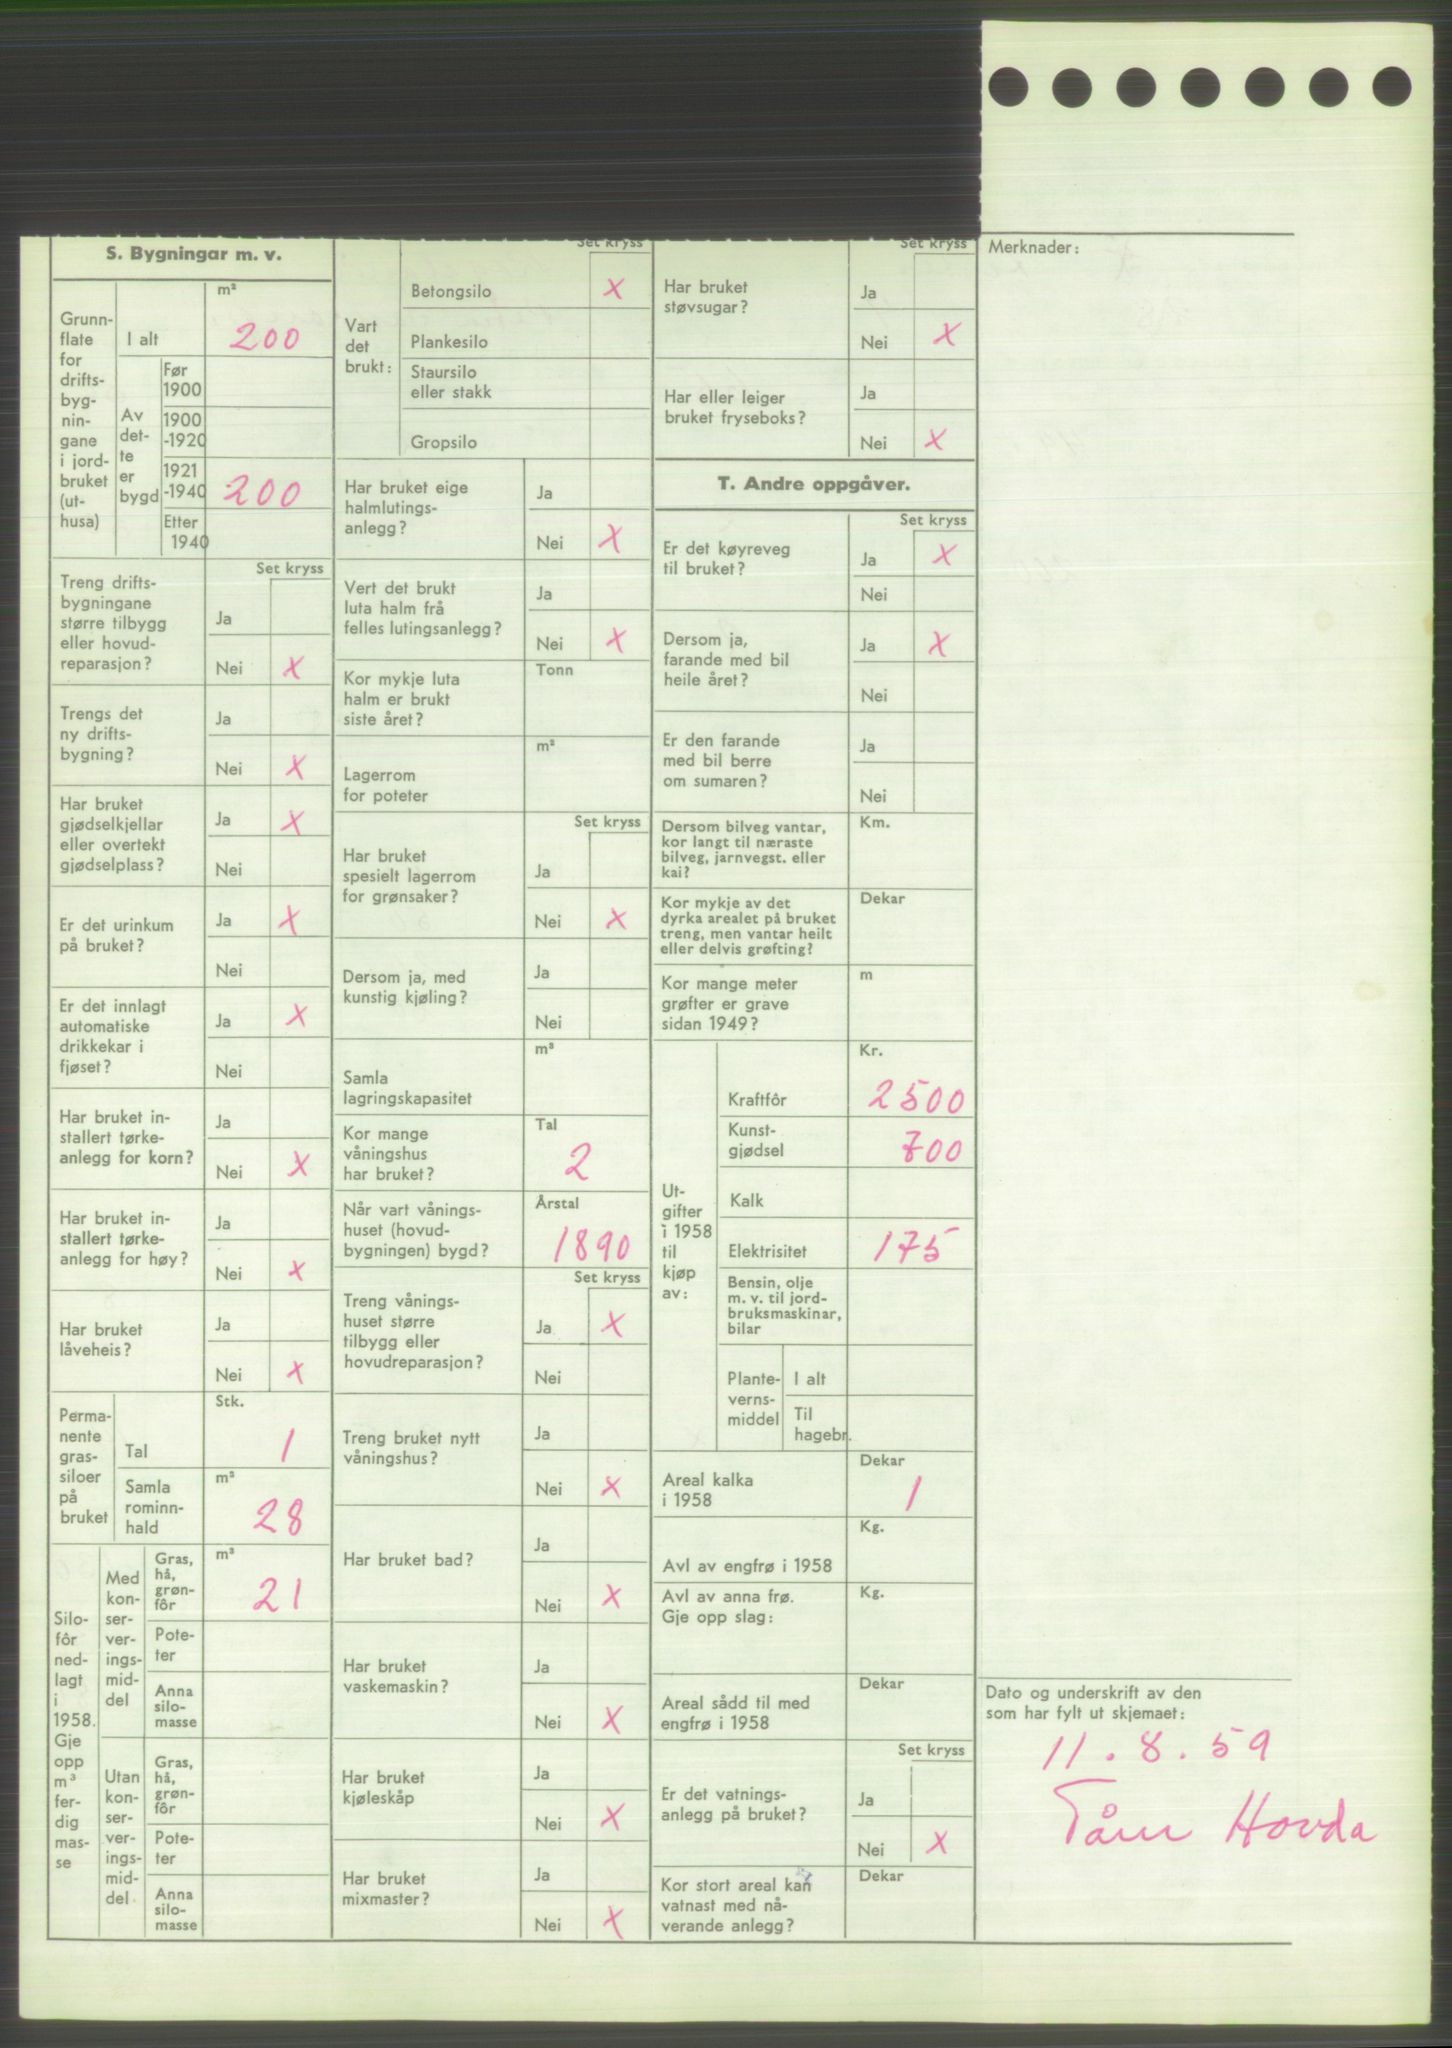 S. Bygningar m. v.
Grunn-
flate
for
drifts-
byg-
nin-
gane
i jord-
bruket
(ut-
husa)
I alt
m²
200
Av
det-
te
er
bygd
Før
1900
1900
-1920
1921
-1940
200
Etter
1940
Set kryss
Treng drifts-
bygningane
større tilbygg
eller hovud-
reparasjon?
Ja
Nei X
Trengs det
ny drifts-
bygning?
Ja
Nei X
Har bruket
gjødselkjellar
eller overtekt
gjødselplass?
Ja X
Nei
Er det urinkum
på bruket?
Ja X
Nei
Er det innlagt
automatiske
drikkekar i
fjøset?
Ja X
Nei
Har bruket in-
stallert tørke-
anlegg for korn?
Ja
Nei X
Har bruket in-
stallert tørke-
anlegg for høy?
Ja
Nei X
Har bruket
låveheis?
Ja
Nei X
Perma-
nente
gras-
siloer
på
bruket
Tal
Stk.
1
Samla
rominn-
hald
m³
28
Silo-
fôr
ned-
lagt
i
1958.
Gje
opp
m³
fer-
dig
mas-
se
Med
kon-
ser-
ver-
ings-
mid-
del
Gras,
hå,
grøn-
fôr
m³
21
Pote-
ter
Anna
silo-
masse
Utan
kon-
ser-
ver-
ings-
mid-
del.
Gras,
hå,
grøn-
fôr
Pote-
ter
Anna
silo-
masse
Set kryss
Vart
det
brukt:
Betongsilo X
Plankesilo
Staursilo
eller stakk
Gropsilo
Har bruket eige
halmlutings-
anlegg?
Ja
Nei X
Vert det brukt
luta halm frå
felles lutingsanlegg?
Ja
Nei X
Kor mykje luta
halm er brukt
siste året?
Tonn
Lagerrom
for poteter
m²
Set kryss
Har bruket
spesielt lagerrom
for grønsaker?
Ja
Nei X
Dersom ja, med
kunstig kjøling?
Ja
Nei
Samla
lagringskapasitet
m³
Kor mange
våningshus
har bruket?
Tal
2
Når vart vånings-
huset (hovud-
bygningen) bygd?
Årstal
1890
Set kryss
Treng vånings-
huset større
tilbygg eller
hovudreparasjon?
Ja X
Nei
Treng bruket nytt
våningshus?
Ja
Nei X
Har bruket bad?
Ja
Nei X
Har bruket
vaskemaskin?
Ja
Nei X
Har bruket
kjøleskåp
Ja
Nei X
Har bruket
mixmaster?
Ja
Nei X
Set kryss
Har bruket
støvsugar?
Ja
Nei X
Har eller leiger
bruket fryseboks?
Ja
Nei X
T. Andre oppgåver.
Set kryss
Er det køyreveg
til bruket?
Ja X
Nei
Dersom ja,
farande med bil
heile året?
Ja X
Nei
Er den farande
med bil berre
om sumaren?
Ja
Nei
Dersom bilveg vantar,
kor langt til næraste
bilveg, jarnvegst. eller
kai?
Km.
Kor mykje av det
dyrka arealet på bruket
treng, men vantar heilt
eller delvis grøfting?
Dekar
Kor mange meter
grøfter er grave
sidan 1949?
m
Ut-
gifter
i 1958
til
kjøp
av:
Kr.
Kraftfôr 2500
Kunst-
gjødsel
700
Kalk
Elektrisitet 175
Bensin, olje
m. v. til jord-
bruksmaskinar,
bilar
Plante-
verns-
middel
I alt
Til
hagebr.
Areal kalka
i 1958
Dekar
1
Avl av engfrø i 1958
Kg.
Avl av anna frø.
Gje opp slag:
Kg.
Areal sådd til med
engfrø i 1958
Dekar
Set kryss
Er det vatnings-
anlegg på bruket?
Ja
Nei X
Kor stort areal kan
vatnast med nå-
verande anlegg?
Dekar
Merknader:
Dato og underskrift av den
som har fylt ut skjemaet:
11. 8. 59
Hovda